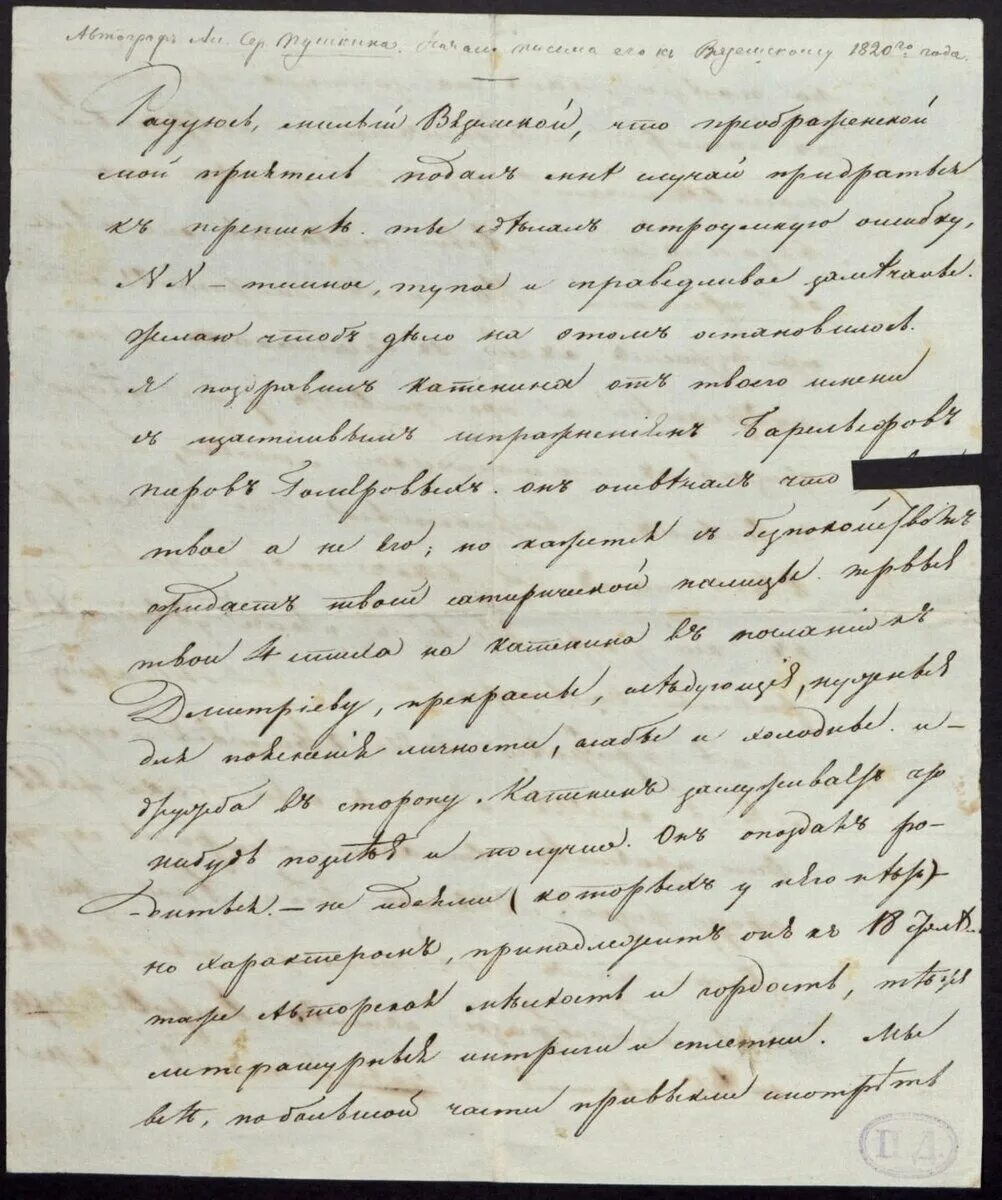 Автографъ Ал. Сер. Пушкина. Начало письма его къ Вяземскому 1820го года.
Радуюсь, милый Вяземской, что преображенской
мой приятель подалъ мнѣ случай придраться
къ перепискѣ. ты сдѣлалъ остроумную ошибку,
NN – темное, тупое и справедливое замѣчанье.
Желаю чтобъ дѣло на этомъ остановилось.
я поздравилъ Катенина отъ твоего имени
съ щастливымъ Барельефовъ
пировъ Гомеровыхъ. онъ отвѣчалъ что
твое а не его; но кажется съ безпокойствомъ
ожидаетъ твоей сатирической палицы. первыя
твои 4 стиха на Катенина въ посланіи къ
Дмитріеву, прекрасны, слѣдующія, нужныя
для поясненія личности, слабы и холодны. и –
дружба въ сторону Катенинъ заслуживаетъ что
нибудь позлѣя и получше. Онъ опоздалъ ро-
-диться – не идеями (которыхъ у него нѣтъ) –
но характеромъ, принадлежитъ онъ къ 18
таже Авторская мѣлкость и гордость, тѣжъ
литературныя интриги и сплетни. Мы
всѣ, по большой части привыкли смотрѣть
П. Д.